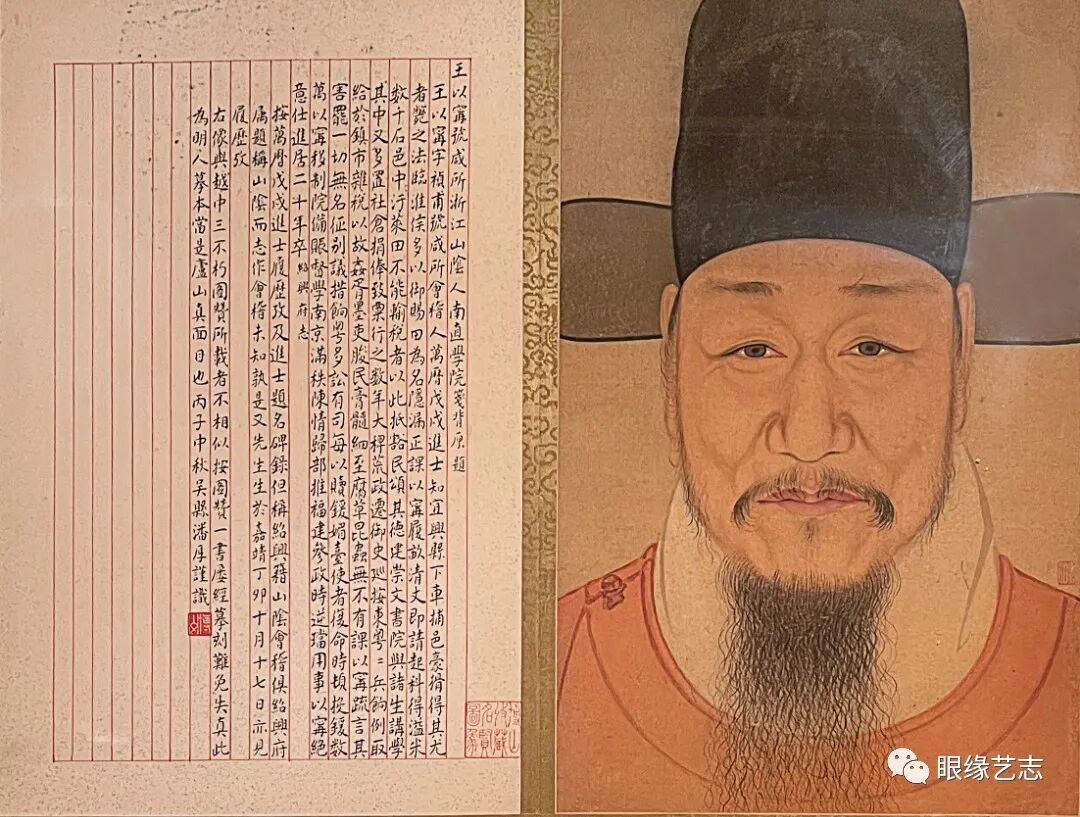 王以寗號咸所浙江山陰人南直學院箋背原題
王以寗字禎甫號咸所會稽人萬曆戊戌進士知宜興縣下車捕邑豪猾得其尤
者斃之法臨淮侯多以御賜田為名隱漏正課以寗履畝清丈即請起科得溢米
数千石邑中汙萊田不能輸稅者以此抵豁民頌其德建崇文書院與諸生講學
其中又多置社倉捐俸致粟行之数年大稗荒政遷御史巡按東粤二兵餉例取
給於鎮市雜稅以故姦胥墨吏朘民膏髓細至腐草昆蟲無不有課以寗疏言其
害罷一切無名征別議措餉粤多訟有司每以贖鍰媚臺使者復命時頓投鍰数
萬以寗移制院備賑督學南京滿秩陳情歸部推福建參政時逆璫用事以寗絕
意仕進居二十年卒 紹興府志
按萬曆戊戌進士履歷攷及進士題名碑録但稱紹興籍山陰會稽俱紹興府
属題稱山陰而志作會稽未知孰是又先生生於嘉靖丁卯十月十七日亦見
履歷攷
右像與越中三不朽圖贊所載者不相似按圖贊一書屡經摹刻難免失真此
為明人摹本當是盧山真面目也丙子中秋吳縣潘厚謹識
眼缘艺志